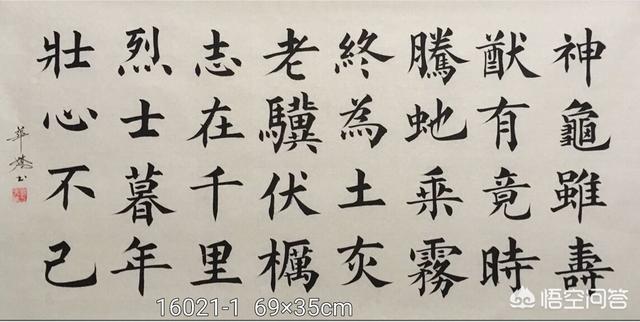 神龜雖壽
猷有竟時
騰虵乘霧
終為土灰
老驥伏櫔
志在千里
烈士暮年
壯心不已
16021-1 69×35cm
悟空问答